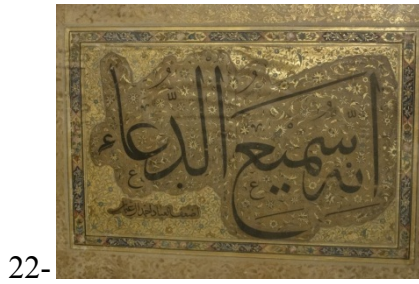 22-
انه سميع الدعاء